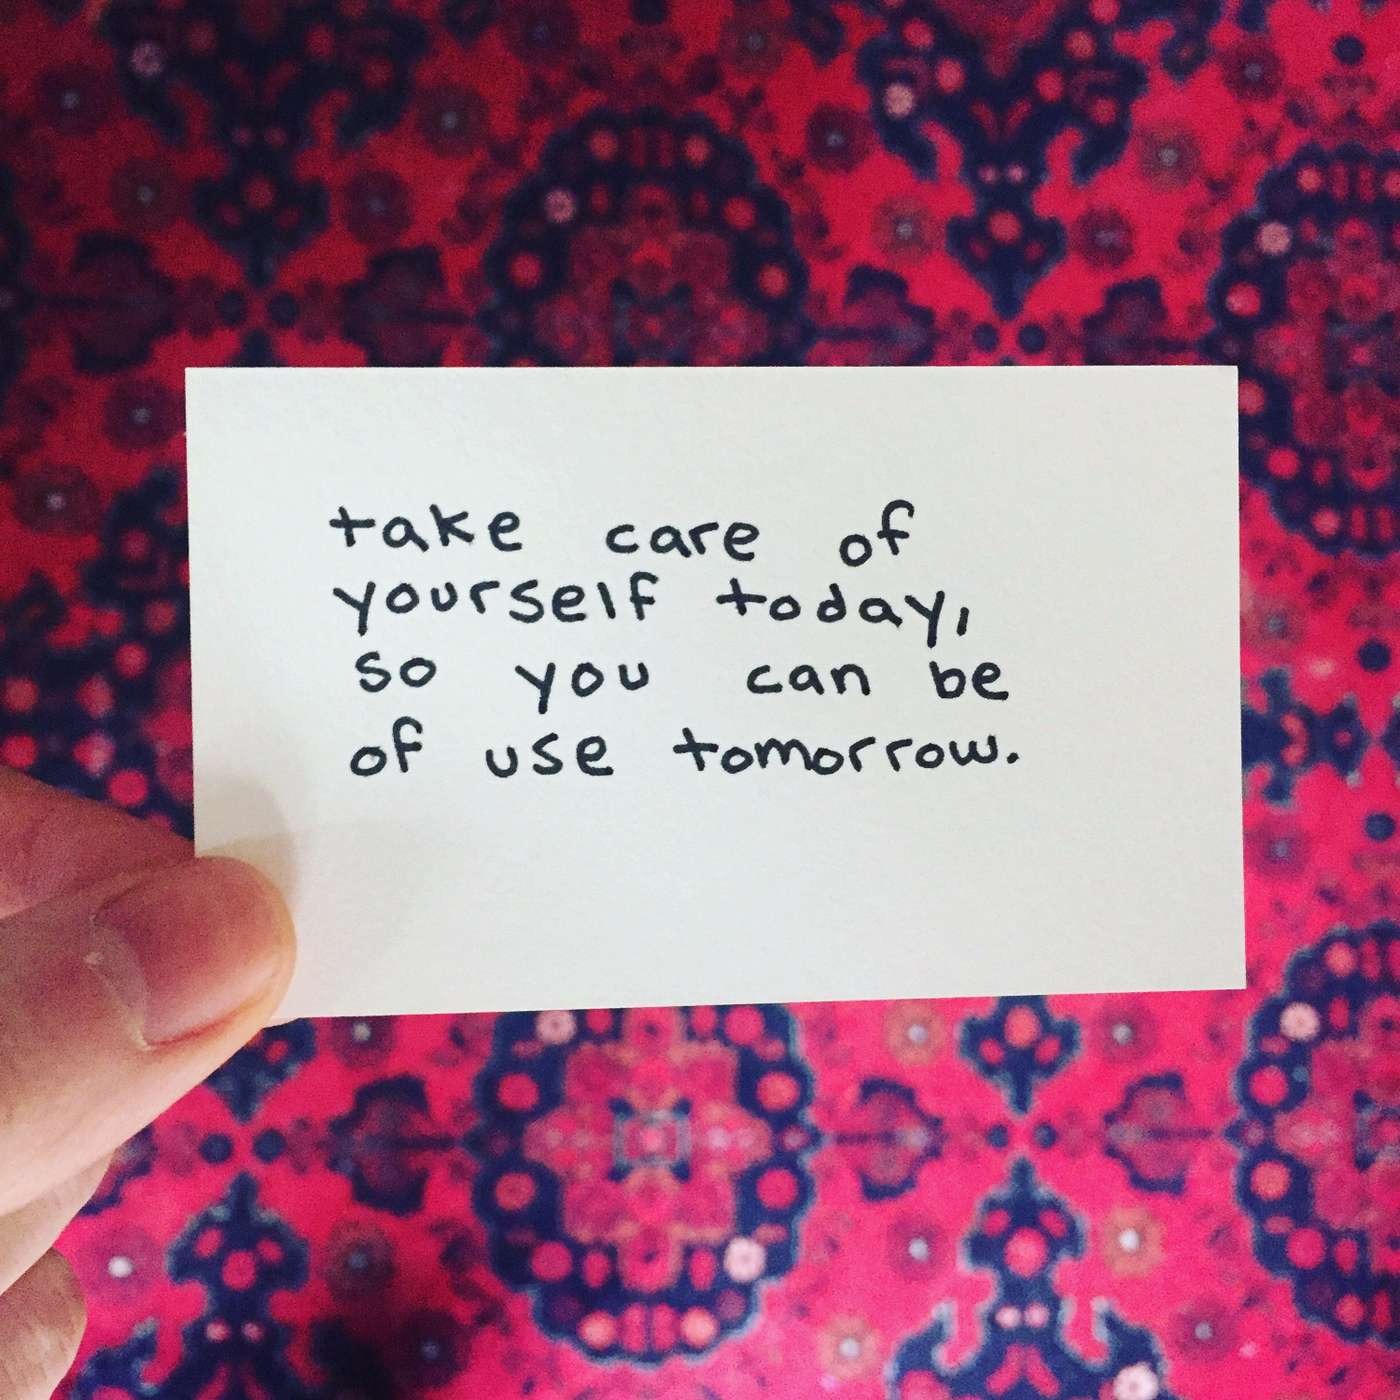 take care of
yourself today,
so you can be
of use tomorrow.